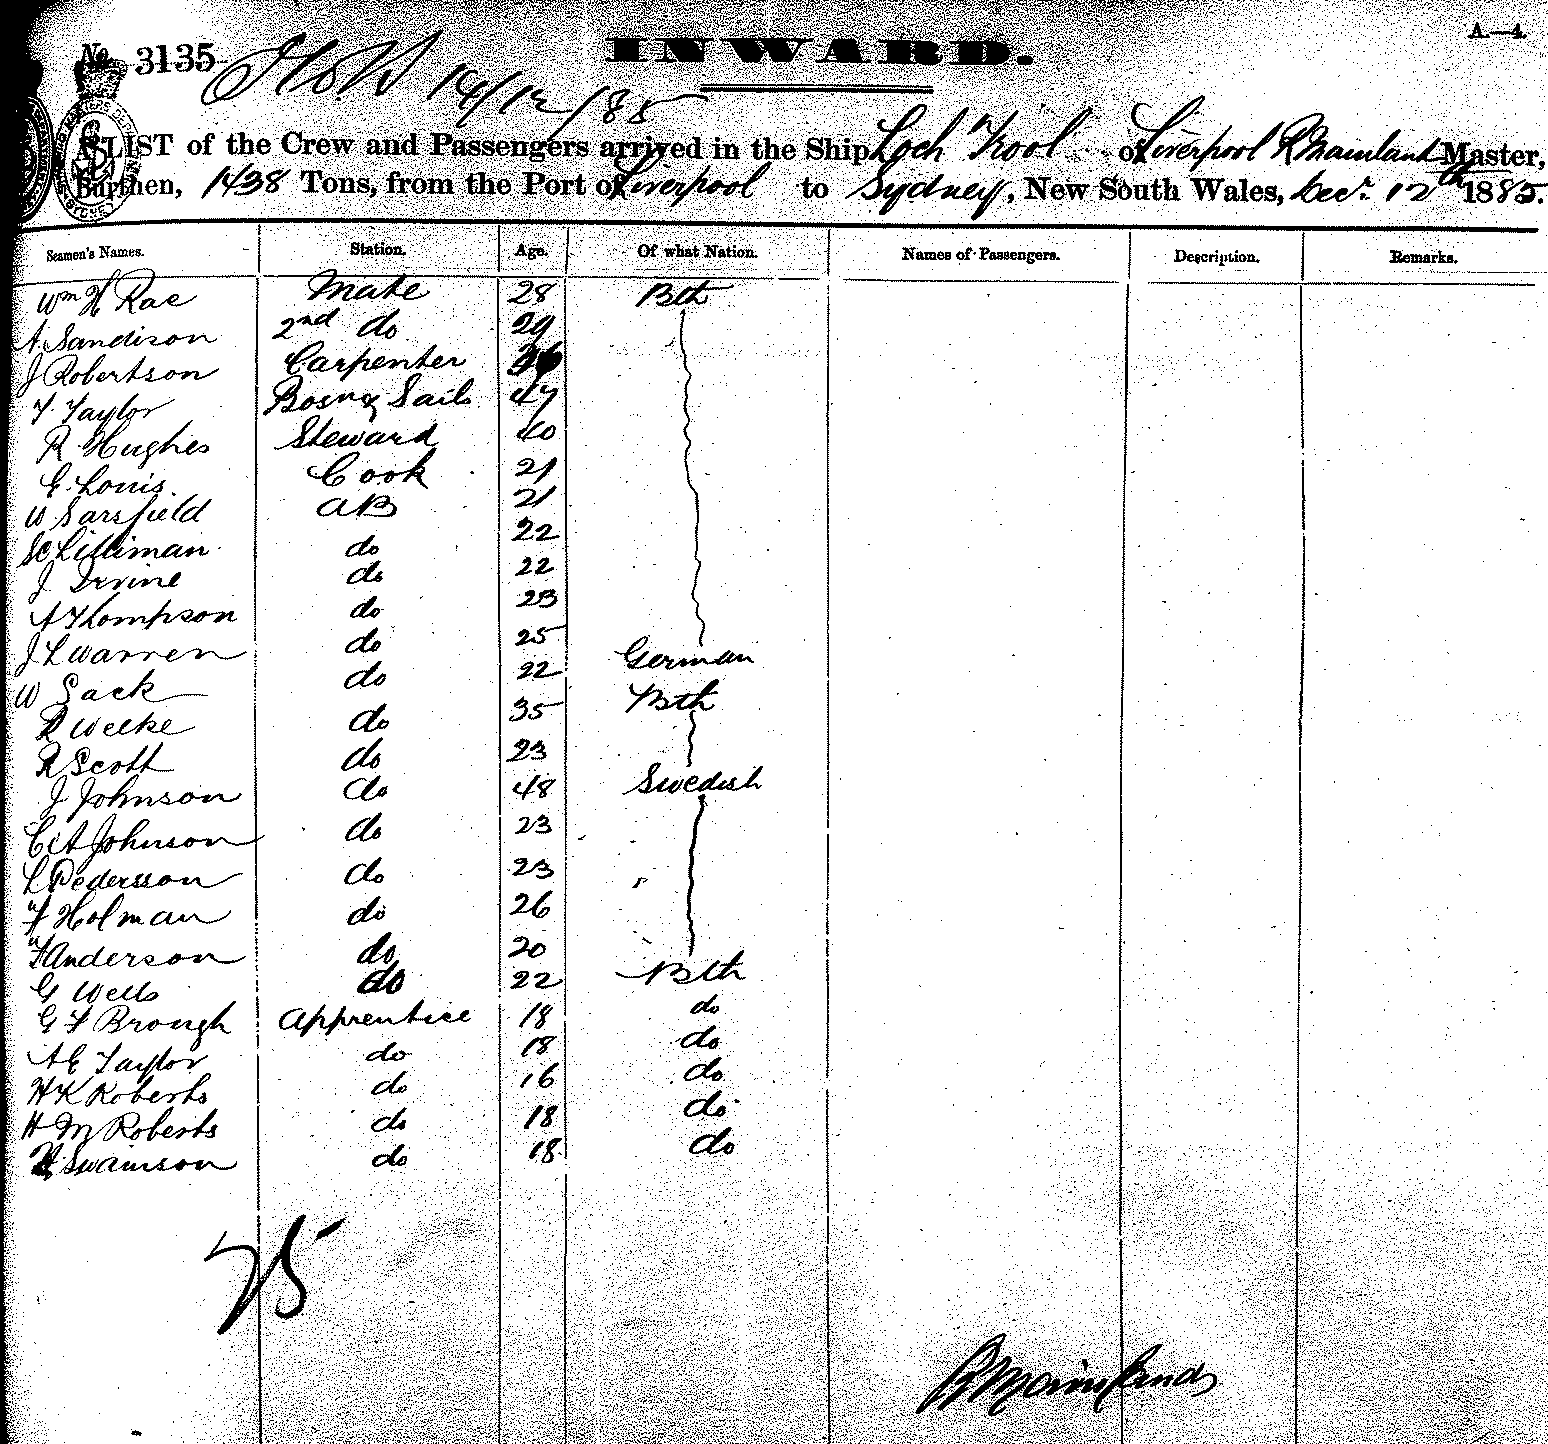 INWARD.
A.—4.
No. 3135
14/12/85
A LIST of the Crew and Passengers arrived in the Ship Loch Trool of Liverpool R Mainland Master,
Burthen, 1438 Tons, from the Port of Liverpool to Sydney, New South Wales, Decr. 12th 1885.
Seamen's Names. Station. Age. Of what Nation. Names of Passengers. Description. Remarks.
Wm H Rae Mate 28 Bth
A. Sandison 2nd do 29
J Robertson Carpenter
F. Taylor Bosn & Sails 47
R Hughes Steward 40
E. Louis. Cook 21
W Sarsfield AB 21
Lilliman do 22
J Irvine do 22
A Thompson do 23
J L Warren do 25
W Sack do 22 German
R Welke do 35 Bth
R Scott do 23
J Johnson do 48 Swedish
C A Johnson do 23
L Pedersson do 23
F Holman do 26
F Anderson do 20
G Wells do 22 Bth
G F Brough Apprentice 18 do
A E Taylor do 18 do
H K Roberts do 16 do
H M Roberts do 18 do
Swainson do 18 do
25
R Mainland